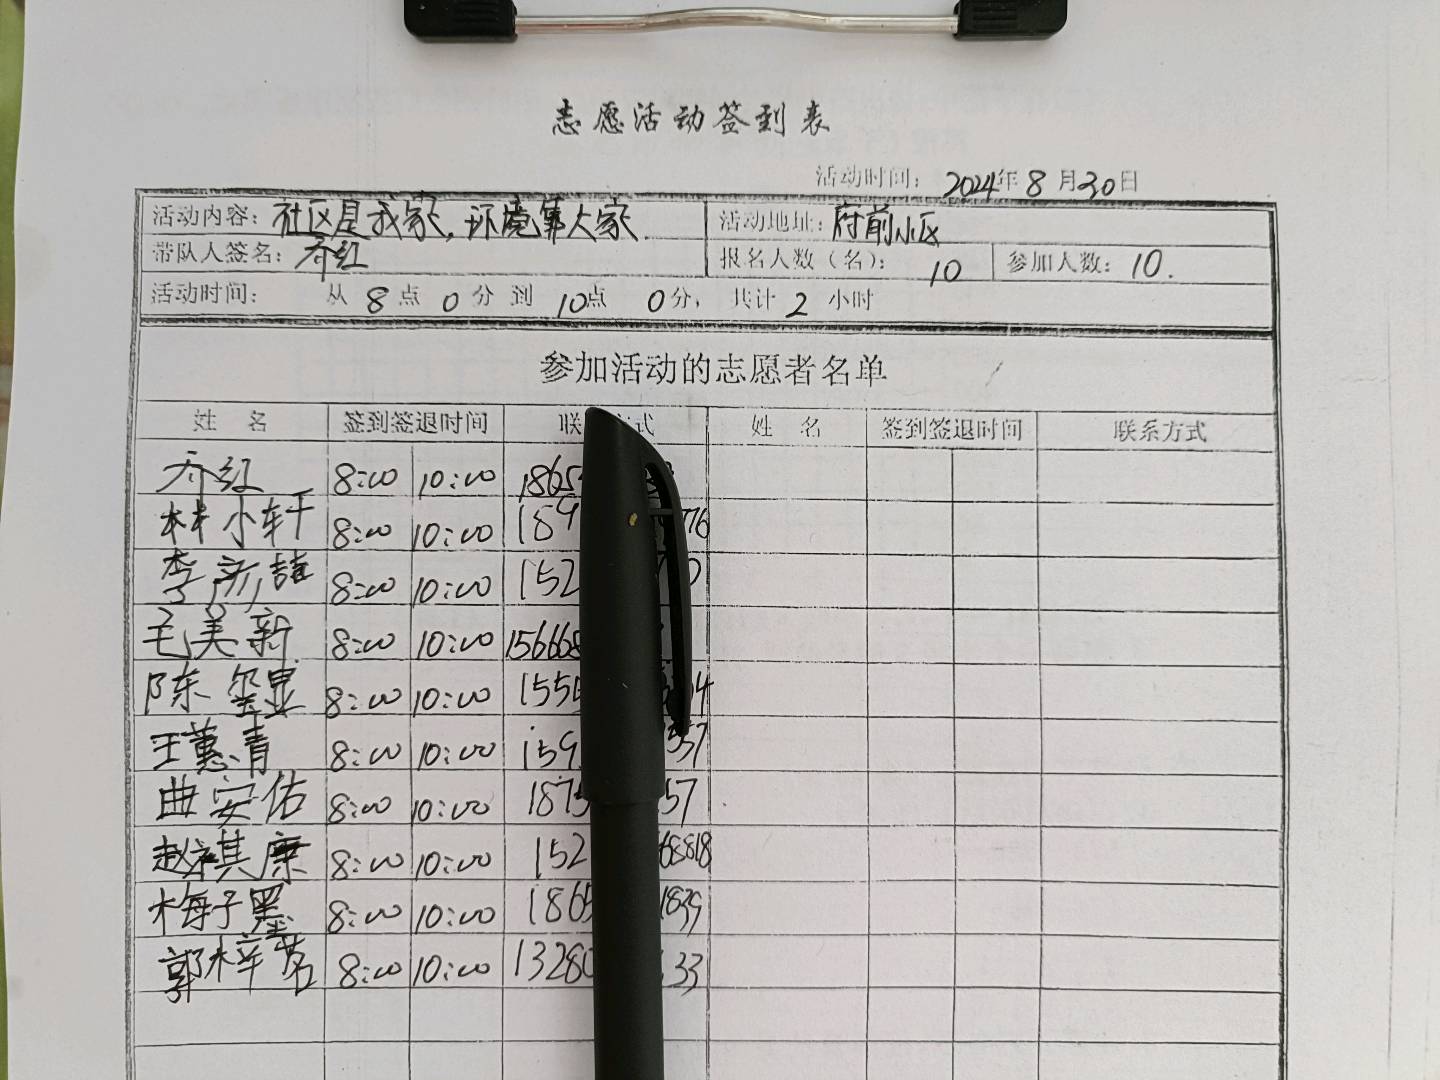 志愿活动签到表
活动时间： 2024年 8 月30日
活动内容：社区是我家，环境靠大家． 活动地址：府前小区
带队人签名：乔红 报名人数（名）： 10 参加人数： 10.
活动时间： 从 8 点 0 分 到 10点 0分， 共计 2 小时
参加活动的志愿者名单
姓 名 签到签退时间 联 式 姓 名 签到签退时间 联系方式
乔红 8:00 10:00 1865
林小轩 8:00 10:00 189 776
李彦喆 8:00 10:00 152
毛美新 8:00 10:00 156668
陈 8:00 10:00 155 14
王蕙清 8:00 10:00 159 557
曲安佑 8:00 10:00 1875 57
赵祺康 8:00 10:00 152 68818
梅子墨 8:00 10:00 1865 1839
郭梓茗 8:00 10:00 13280 33